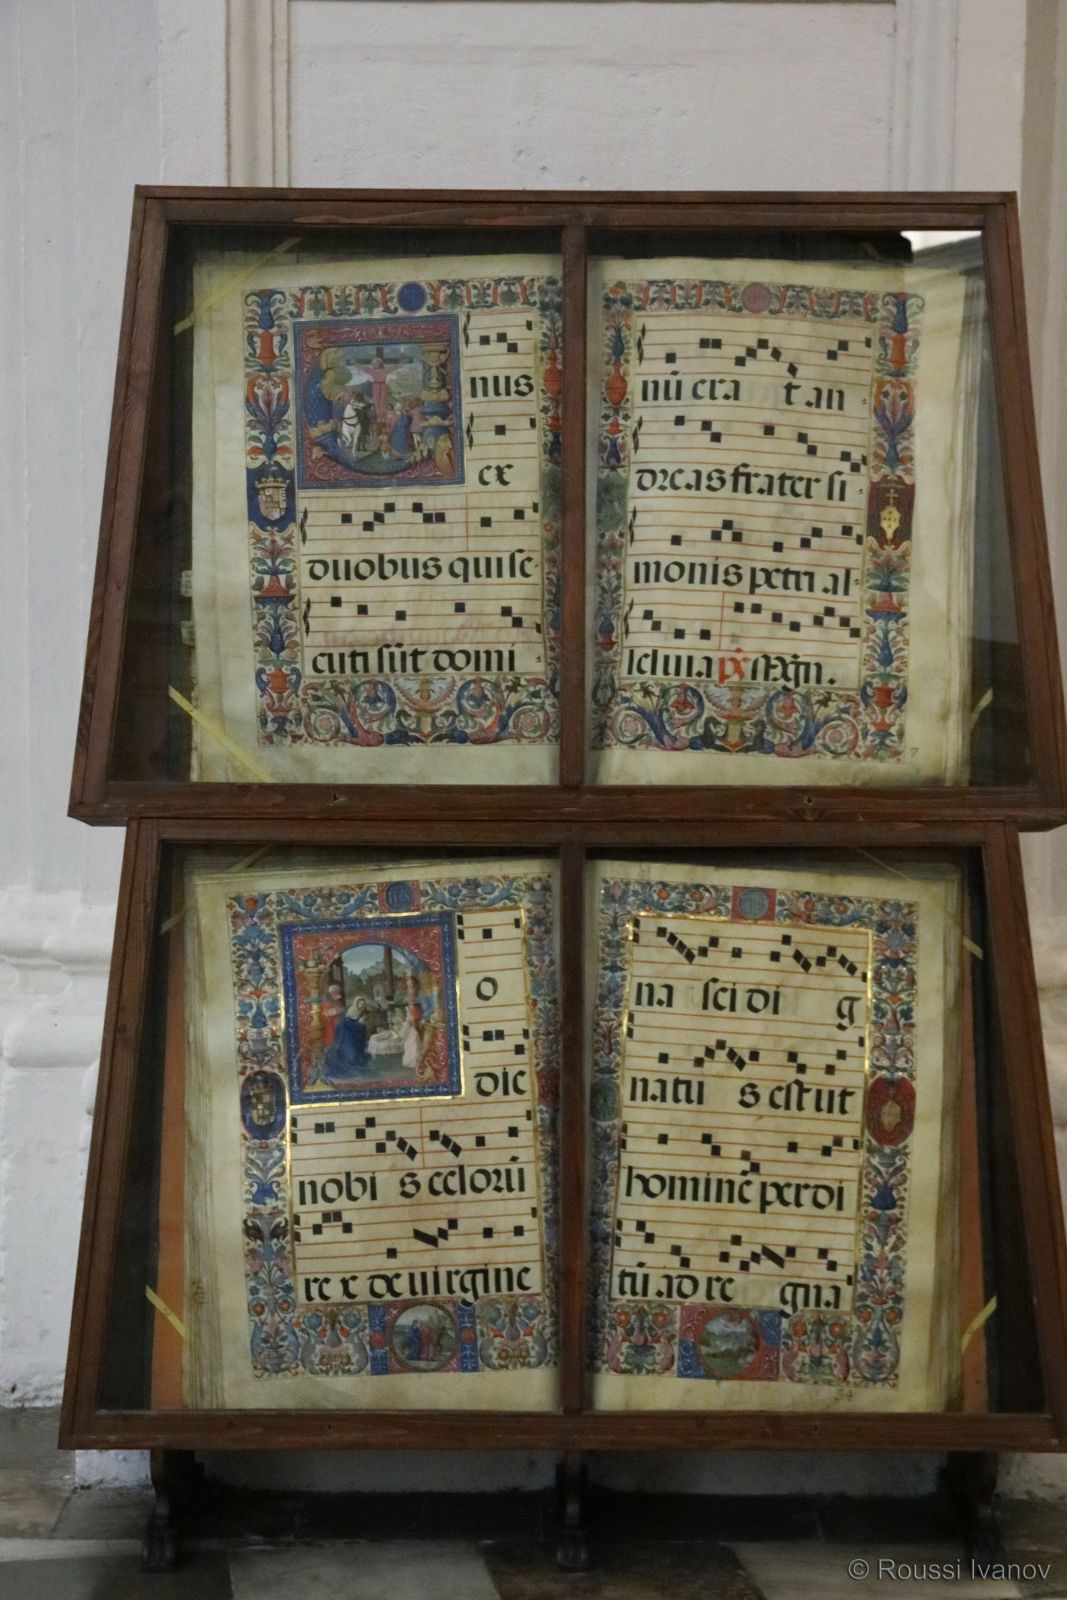 nus
ex
duobus qui se-
cuti sūt domi-
nū era t an-
dreas frater si-
monis petri al-
leluia
7
o
die
nobis celorū
rex de virgine
na sci dig
natus est ut
hominē perdi
tū ad regna
34
© Roussi Ivanov